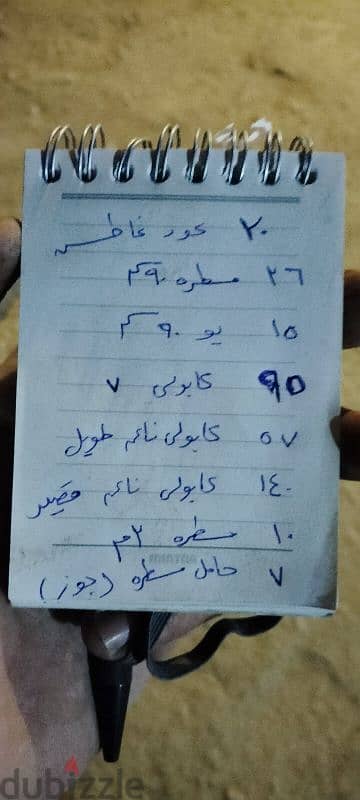 ٢٠ عود غاطس
٢٦ مسطره ٩٠ سم
١٥ يو ٩٠ سم
95 كابولى ٧
٥٧ كابولى نائم طويل
١٤٠ كابولى نائم قصير
١٠ مسطره ٣م
٧ حامل مسطره (جوز)
dubizzle